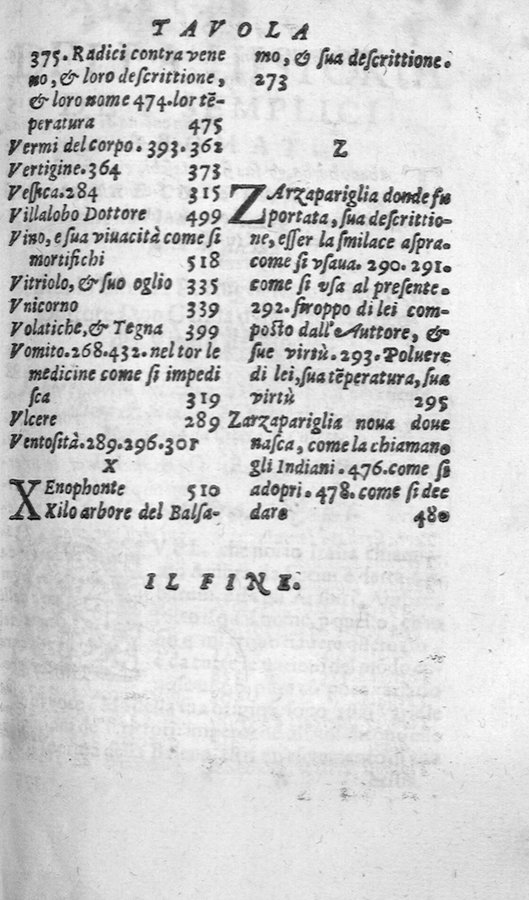 TAVOLA
375. Radici contra vene
no, & loro deſcrittione,
& loro nome 474. lor tē-
peratura 475
Vermi del corpo. 393. 362
Vertigine. 364 373
Veſſica. 284 315
Villalobo Dottore 499
Vino, e ſua viuacità come ſi
mortifichi 518
Vitriolo, & ſuo oglio 335
Vnicorno 339
Volatiche, & Tegna 399
Vomito. 268. 432. nel tor le
medicine come ſi impedi
ſca 319
Vlcere 289
Ventoſità. 289. 296. 301
X
XEnophonte 510
Xilo arbore del Balſa-
mo, & ſua deſcrittione.
273
Z
ZArzapariglia donde fu
portata, ſua deſcrittio-
ne, eſſer la ſmilace aſpra
come ſi vſaua. 290. 291.
come ſi vſa al preſente.
292. ſiroppo di lei com-
poſto dall'Auttore, &
ſue virtù. 293. Poluere
di lei, ſua tēperatura, ſua
virtù 295
Zarzapariglia noua doue
naſca, come la chiamano
gli Indiani. 476. come ſi
adopri. 478. come ſi dee
dare 480
IL FINE.